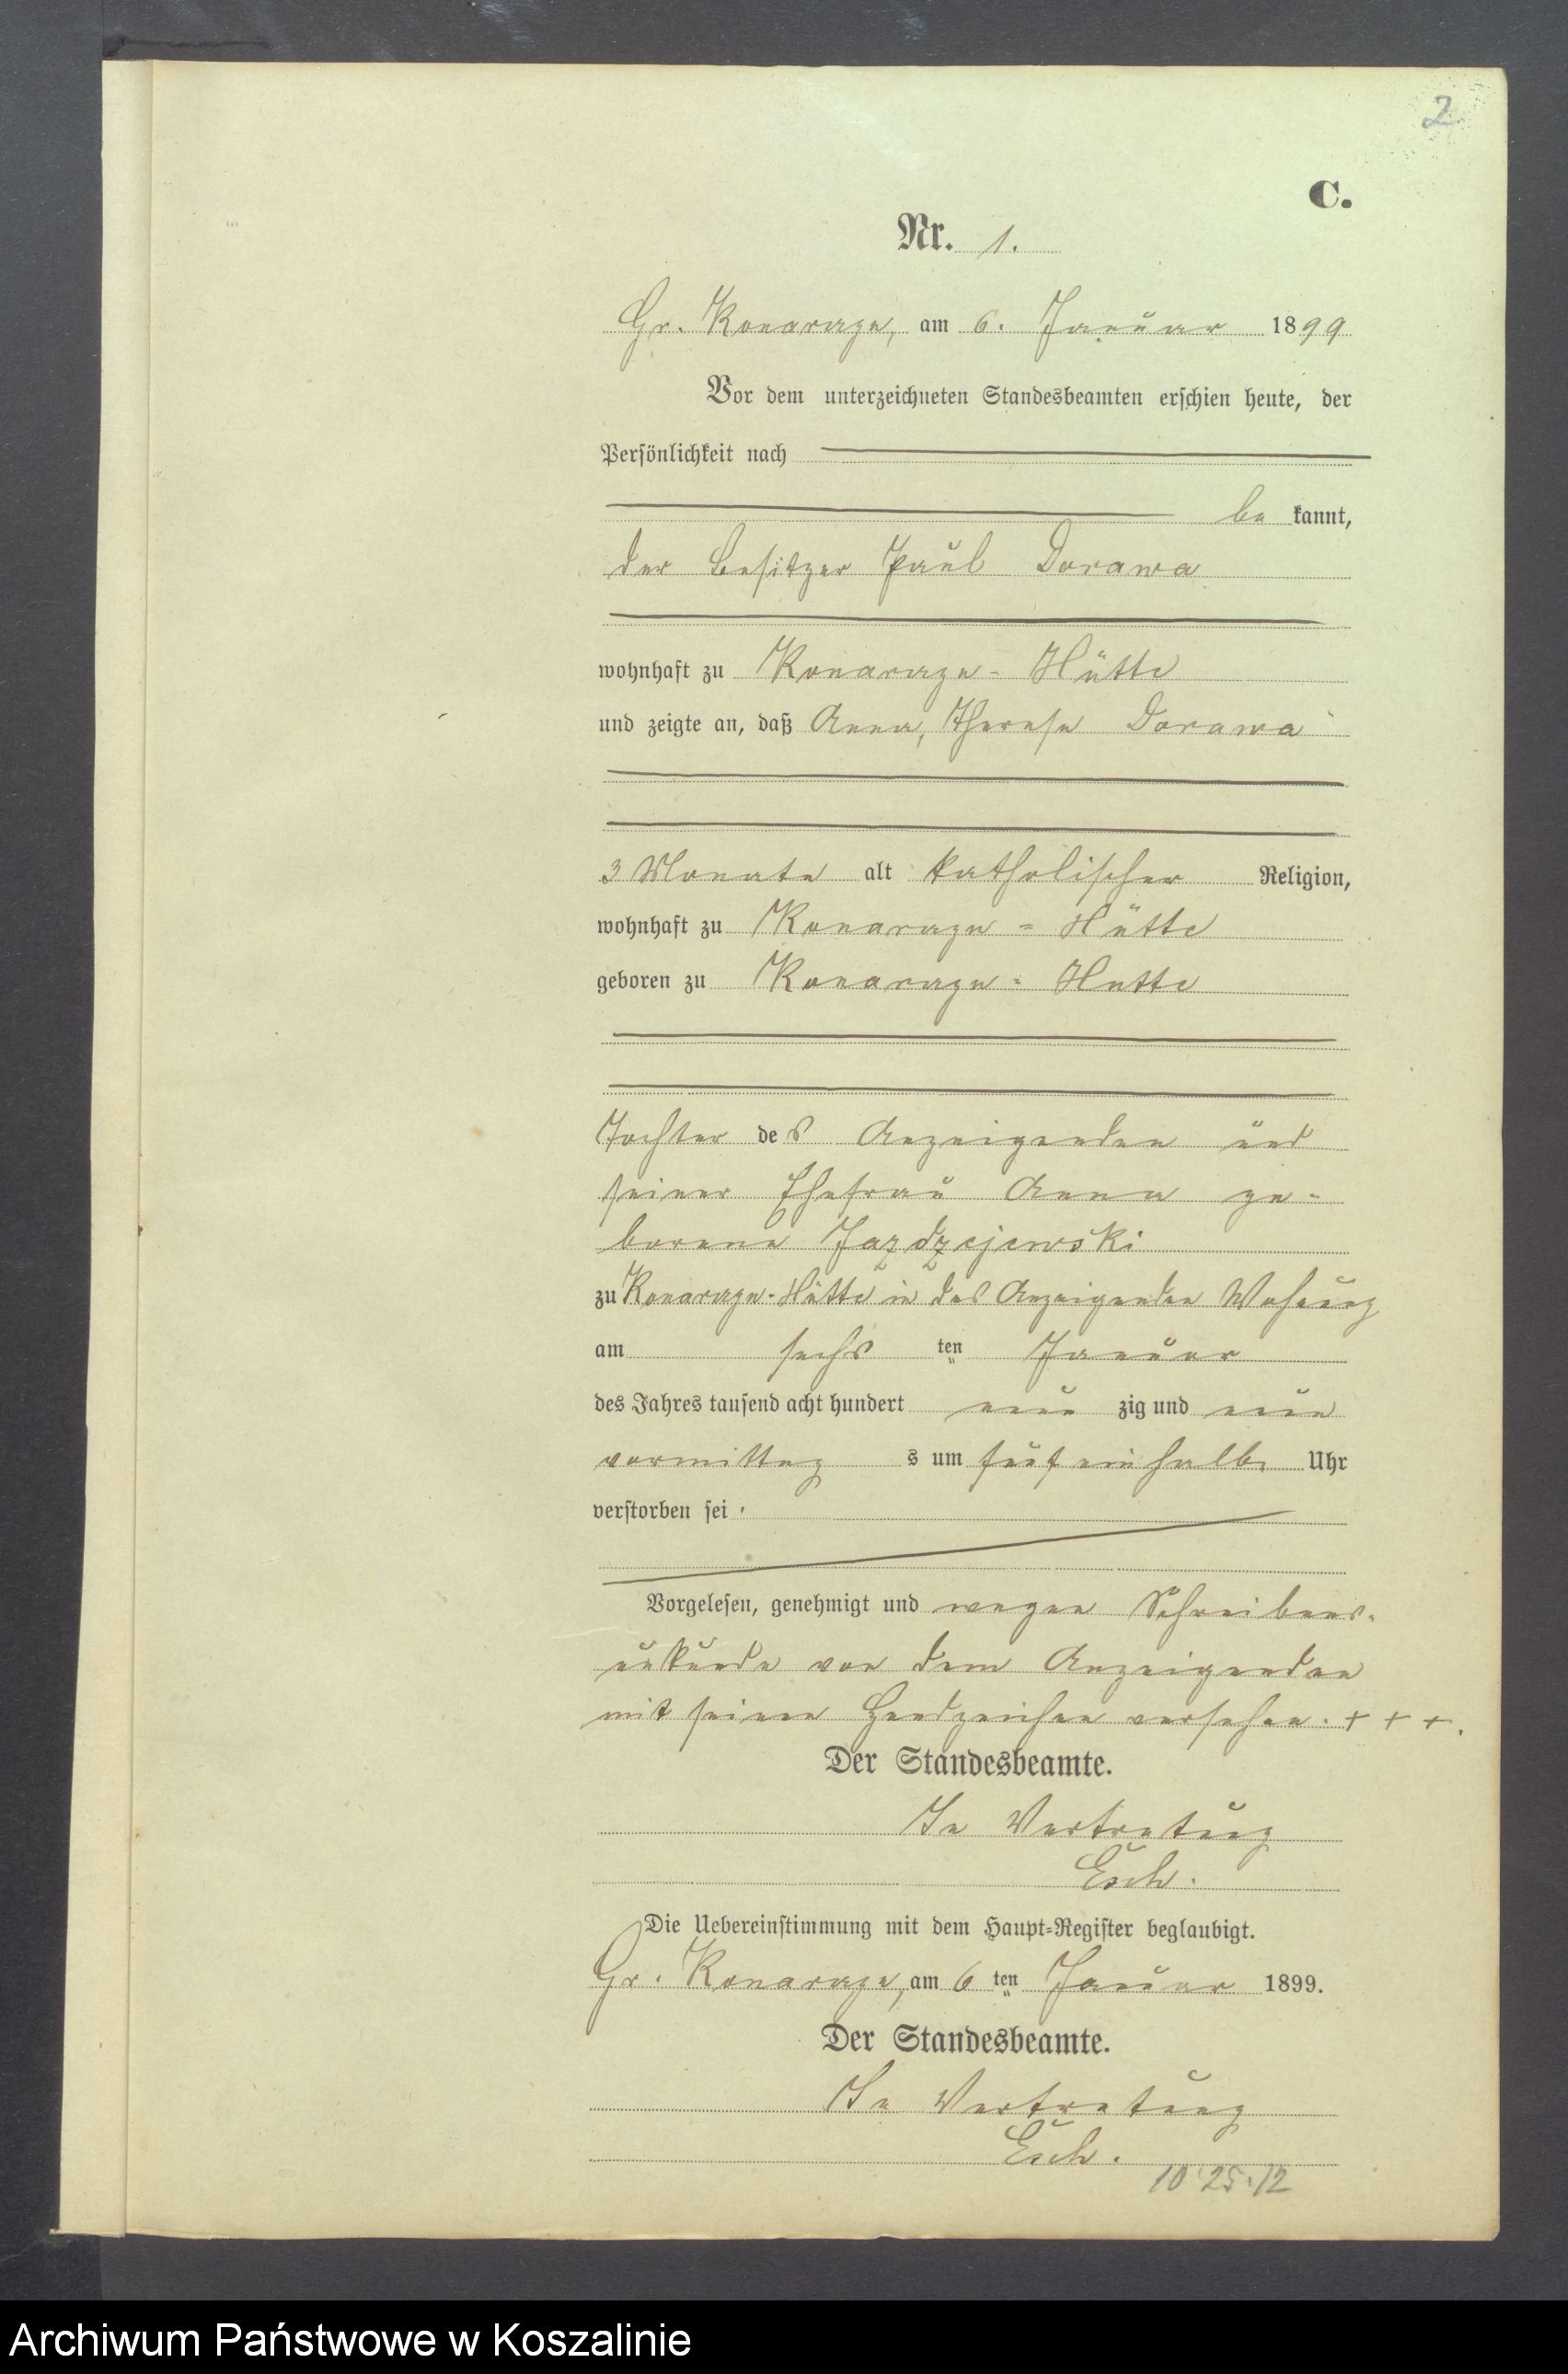 2
C.
Nr. 1.
Gr. Konarzyn, am 6. Januar 1899
Vor dem unterzeichneten Standesbeamten erschien heute, der
Persönlichkeit nach
be kannt,
der Besitzer Paul Dorawa
wohnhaft zu Konarzyn - Hütte
und zeigte an, daß Anna, Therese Dorawa
3 Monate alt katholischer Religion,
wohnhaft zu Konarzyn = Hütte
geboren zu Konarzyn = Hütte
Tochter des Anzeigenden und
seiner Ehefrau Anna ge-
borene Jazdzejewski
zu Konarzyn - Hütte in des Anzeigenden Wohnung
am sechs ten Januar
des Jahres tausend acht hundert neun zig und neun
vormittag s um fünf ein halb Uhr
verstorben sei.
Vorgelesen, genehmigt und wegen Schreibens-
unkunde von dem Anzeigenden
mit seinen Handzeichen versehen. + + +.
Der Standesbeamte.
In Vertretung
Esch.
Die Uebereinstimmung mit dem Haupt-Register beglaubigt.
Gr. Konarzyn, am 6 ten Januar 1899.
Der Standesbeamte.
In Vertretung
Esch.
10 25.12
Archiwum Państwowe w Koszalinie